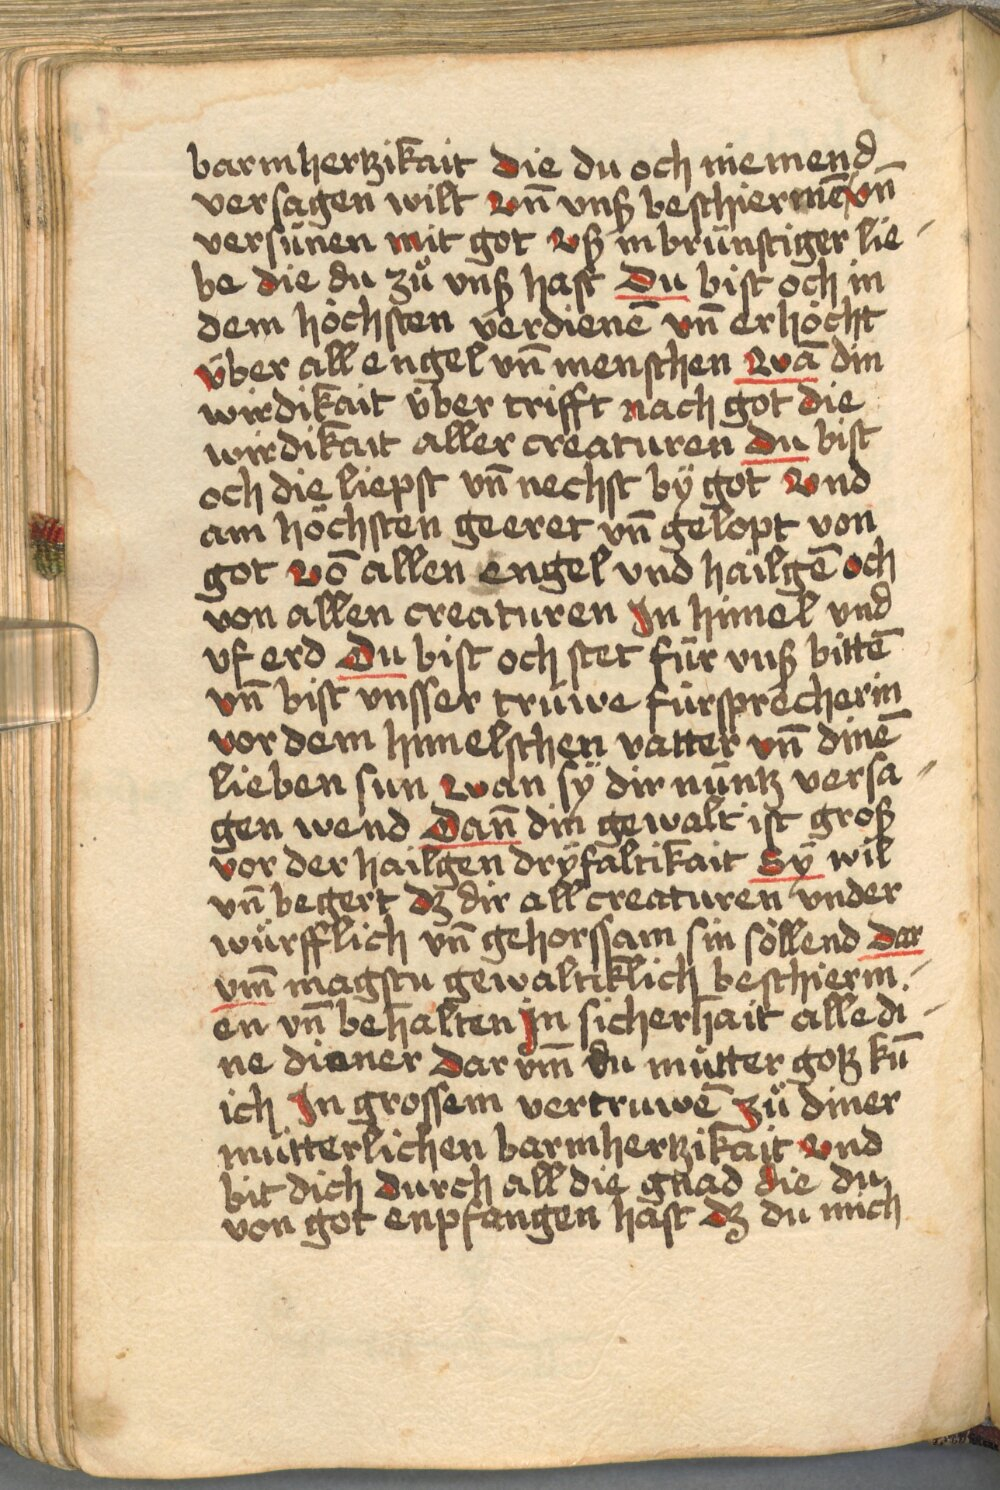 barmhertzikait die du och niemend
versagen wilt vn̄ vnß beschiermē vn̄
versünen mit got vß inbrünstiger lie-
be die du zů vnß hast Du bist och in
dem höchsten verdienē vn̄ erhöcht
über all engel vn̄ menschen wā din
wirdikait über trifft nach got die
wirdikait aller creaturen Du bist
och die liepst vn̄ nechst bÿ got Vnd
am höchsten geeret vn̄ gelopt von
got vō allen engel vnd hailgē och
von allen creaturen In himel vnd
vf erd Du bist och stet für vnß bittē
vn̄ bist vnsser trüwe fürsprecherin
vor dem himelschen vatter vn̄ dinē
lieben sun wan sÿ dir nüntz versa-
gen wend Dan̄ din gewalt ist groß
vor der hailgen drÿfaltikait Sÿ wil
vn̄ begert dz dir all creaturen vnder
würfflich vn̄ gehorssam sin söllend Dar
vm̄ magstu gewaltiklich beschierm-
en vn̄ behalten In sicherhait alle di-
ne diener Dar vm̄ du mütter gotz kū
ich In grossem vertruwē zů diner
mütterlichen barmhertzikait vnd
bit dich durch all die gnad die du
von got enpfangen hast dz du mich